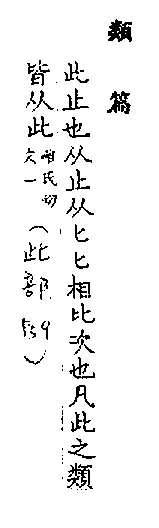 類篇
此止也从止从匕匕相比次也凡此之類
皆从此 氏切文一 (此部)